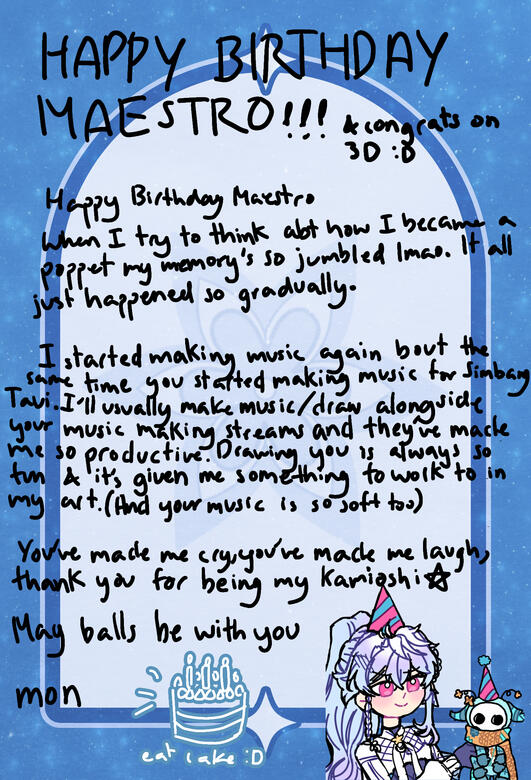 HAPPY BIRTHDAY
MAESTRO!!! & congrats on
3D :D
Happy Birthday Maestro
When I try to think abt how I became a
poppet my memory's so jumbled lmao. It all
just happened so gradually.
I started making music again bout the
same time you started making music for Simbang
Tavi. I'll usually make music/draw alongside
your music making streams and they've made
me so productive. Drawing you is always so
fun & it's given me something to work to in
my art. (And your music is so soft too)
You've made me cry, you've made me laugh,
thank you for being my Kamioshi ☆
May balls be with you
mon
eat cake :D